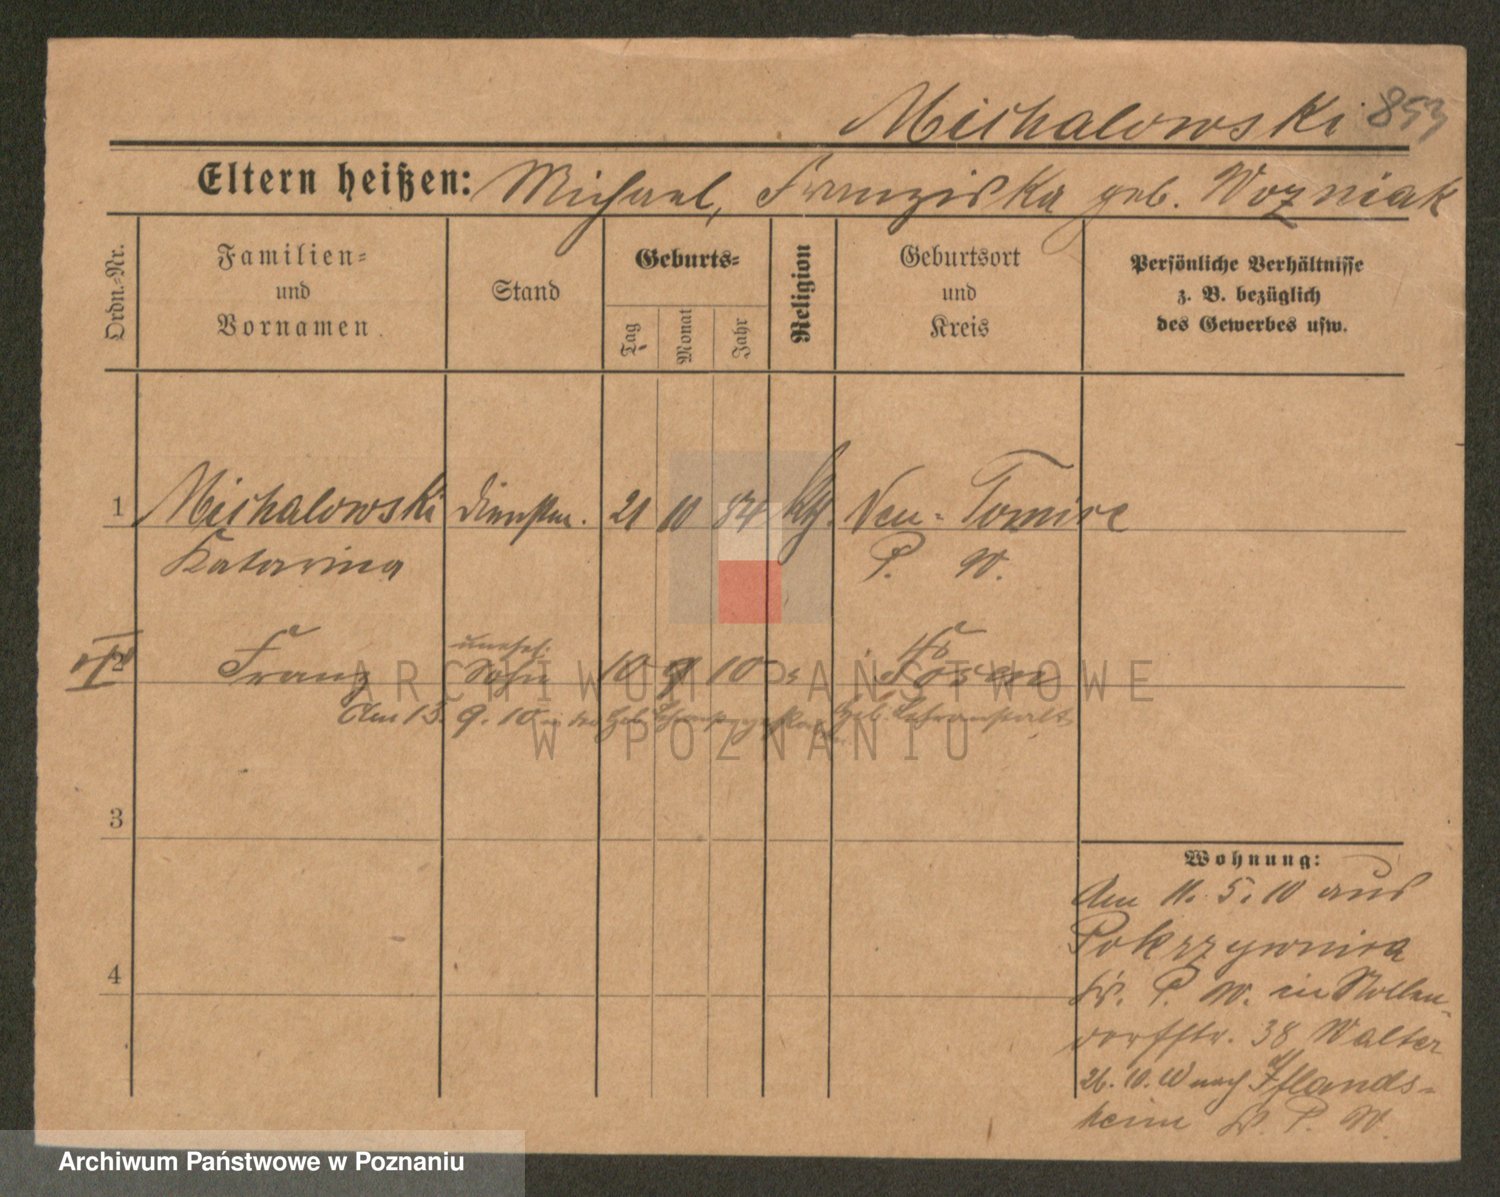 Michalowski 853
Eltern heißen: Michael, Franziska geb. Wozniak
Ordn.-Nr.
Familien-
und
Vornamen.
Stand
Geburts-
Tag
Monat
Jahr
Religion
Geburtsort
und
Kreis
Persönliche Verhältnisse
z. B. bezüglich
des Gewerbes usw.
1 Michalowski Dienstm. 21 10 84 kth. Neu-Tomice
Katarina P. W.
2 Franz unehel. Sohn 10 9 10 Posen
Am 13. 9. 10 in der Hebammen Lehranstalt
ARCHIWUM PAŃSTWOWE
W POZNANIU
3
4
Wohnung:
Am 11. 5. 10 aus
Pokrzywnica
Kr. P. W. in Nollen-
dorfstr. 38 Walter
26. 10. 10 nach Iflands-
heim Kr. P. W.
Archiwum Państwowe w Poznaniu